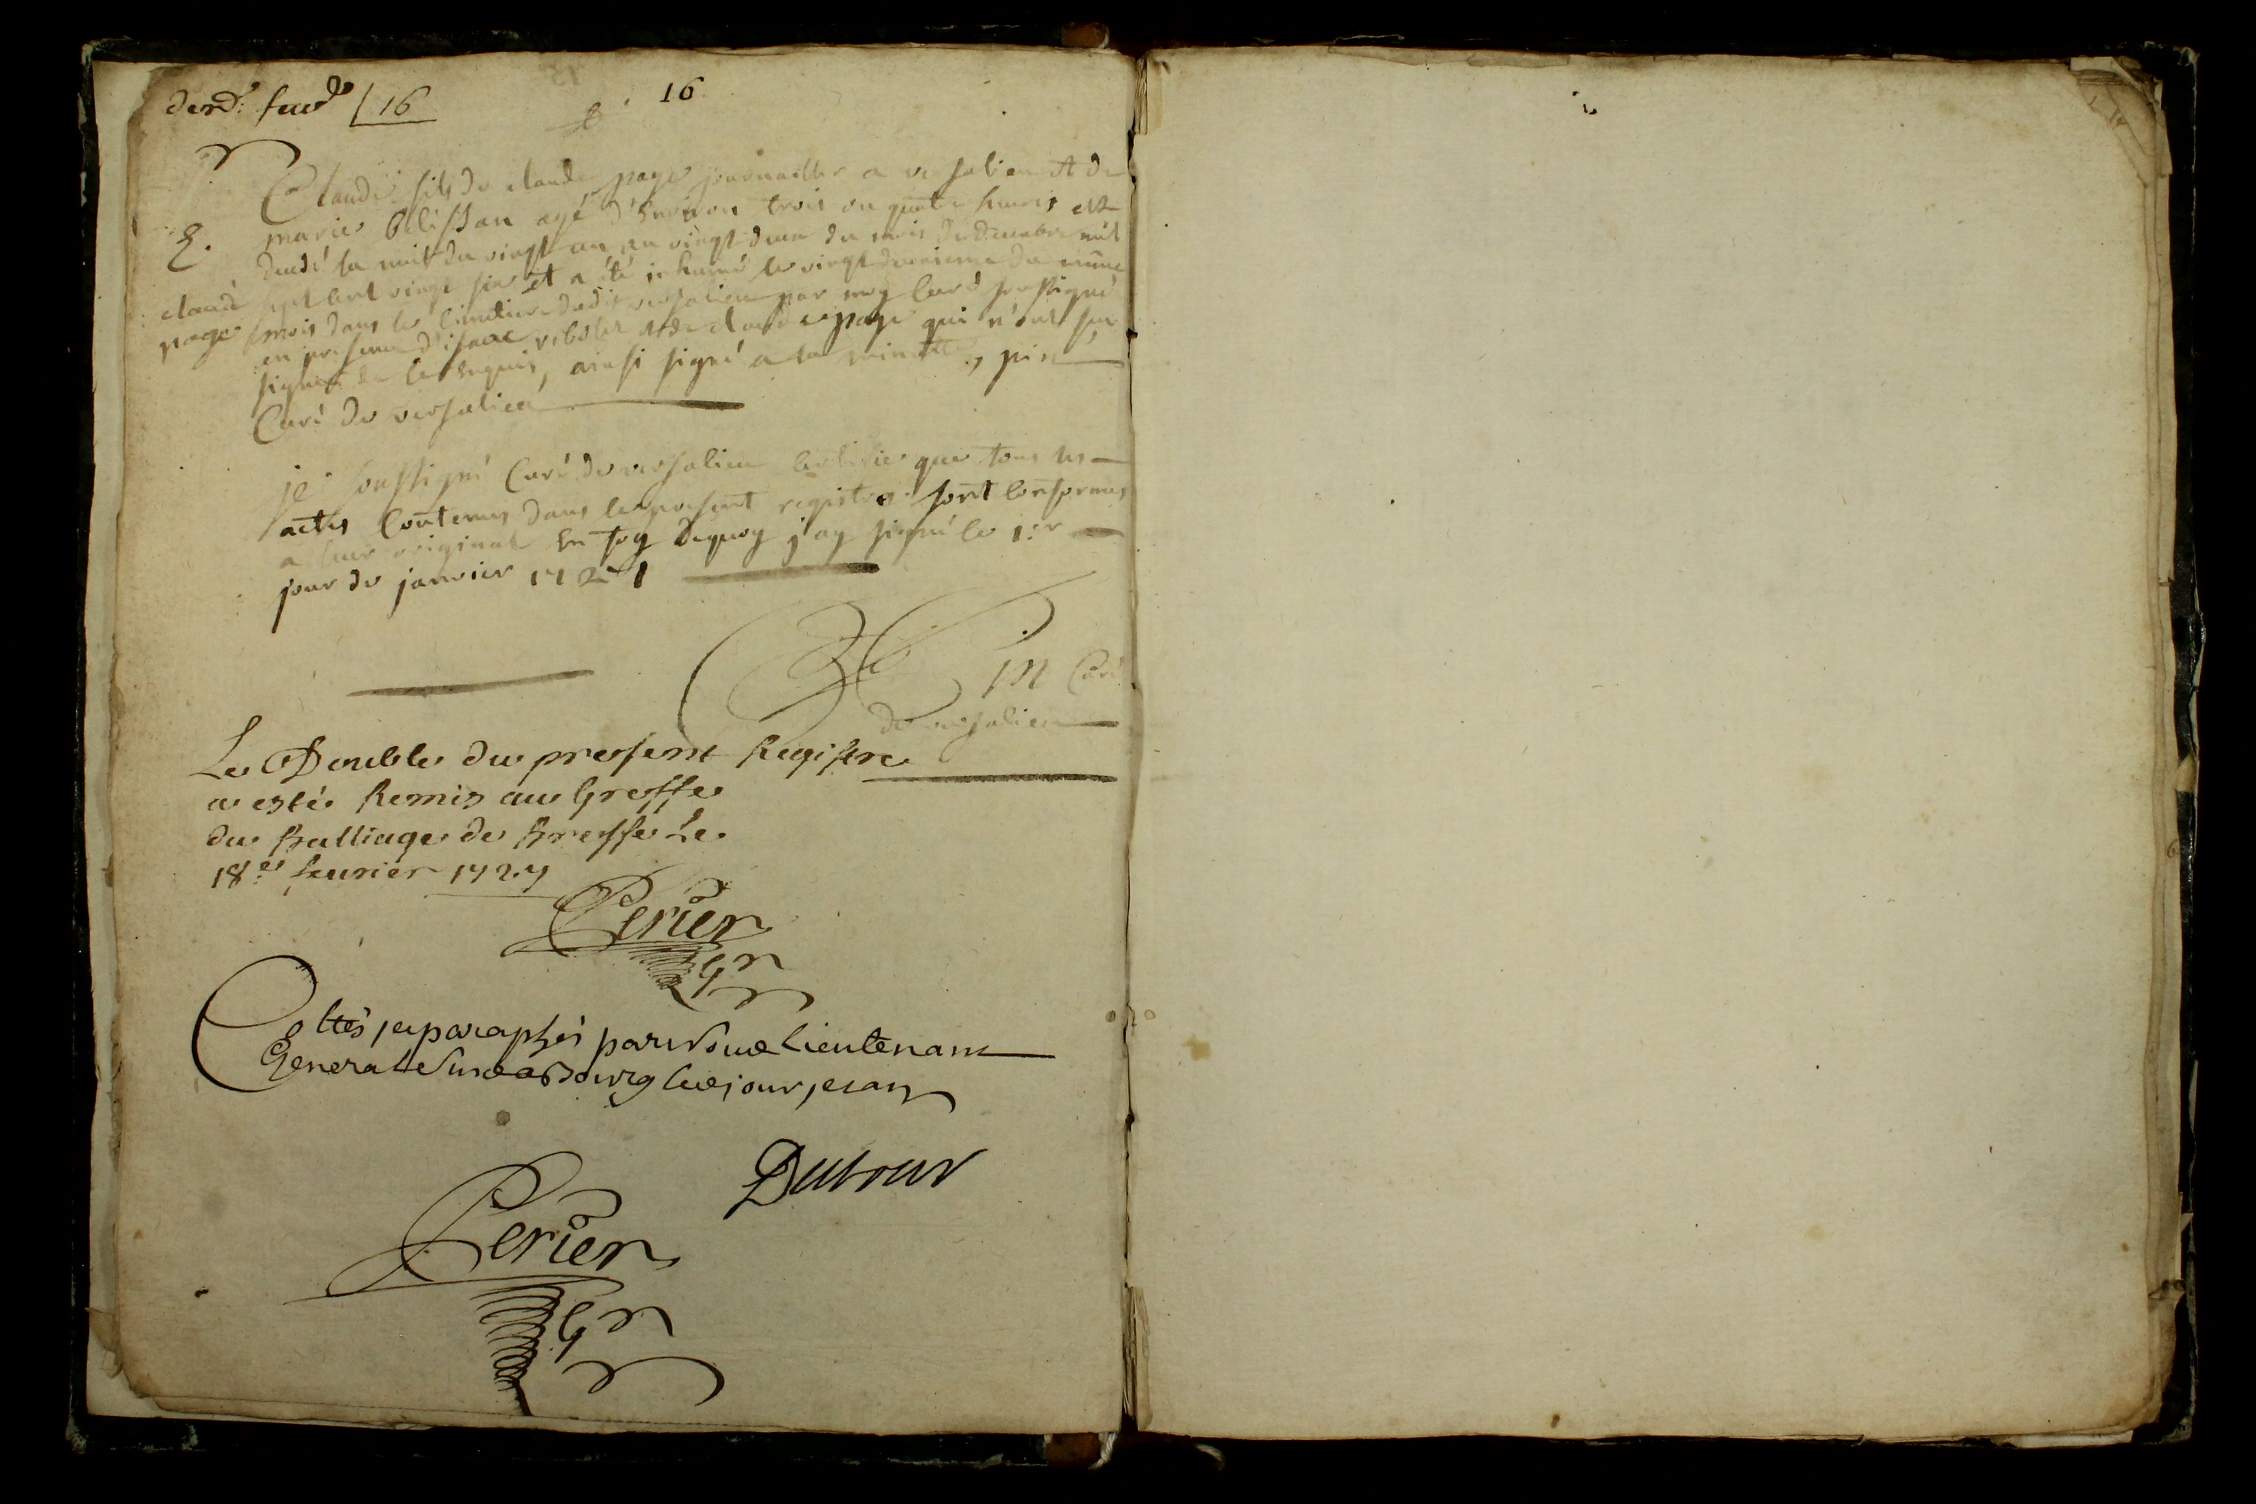 der.^e feu^e | 16
16
Claude fils de claude page journallier a versalieu et de
marie belissan agé d'environ trois ou quatre heures est
E.
decedé la nuit du vingt un au vingt deux du mois de decembre mil
claude
sept cent vingt six et a été inhumé le vingt deuxieme du même
page
mois dans le cimetiere dudit versalieu par moy curé soussigné
en presence d'isaac et de claude page qui n'ont sçu
signer de ce enquis, ainsi signé a la minutte, pin
Curé de versalieu
je soussigné Curé de versalieu certifie que tous les
actes contenus dans le present registre sont conformes
a leur original En foy dequoy j'ay signé le 1.er
jour de janvier 1727
Pin Curé
de versalieu
Le Double du present Registre
a esté Remis au Greffe
du Balliage de Bresse Le
18.e feurier 1727
Perier
Gr
Cottés et paraphés par Nous Lieutenant
General susd a Bourg les jour et an
Dutour
Perier
Gr